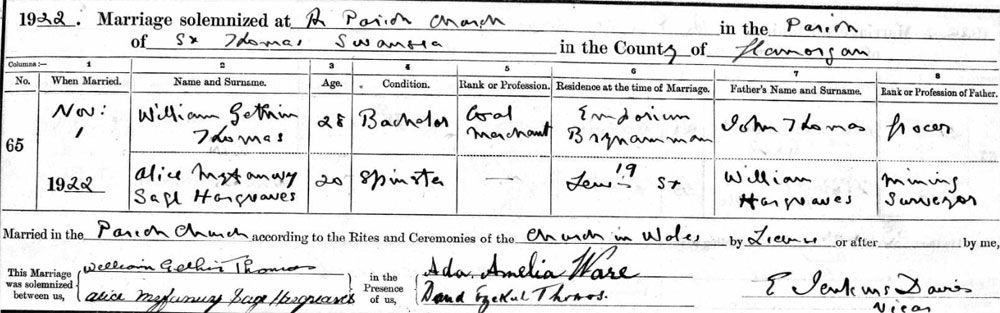 1922. Marriage solemnized at The Parish Church in the Parish
of St Thomas Swansea in the County of Glamorgan
Columns:— 1 2 3 4 5 6 7 8
No. When Married. Name and Surname. Age. Condition. Rank or Profession. Residence at the time of Marriage. Father's Name and Surname. Rank or Profession of Father.
65
Nov: William Gethin 28 Bachelor Coal Emporium John Thomas Grocer
1 Thomas Merchant Brynamman
1922 Alice 20 Spinster — 19 William Mining
Sage Hargreaves Lewis St Hargreaves Surveyor
Married in the Parish Church according to the Rites and Ceremonies of the Church in Wales by Licence or after by me,
This Marriage was solemnized between us,
William Gethin Thomas
Alice Sage Hargreaves
in the Presence of us,
Ada Amelia Ware
David Ezekiel Thomas.
E Jenkins Davies
Vicar